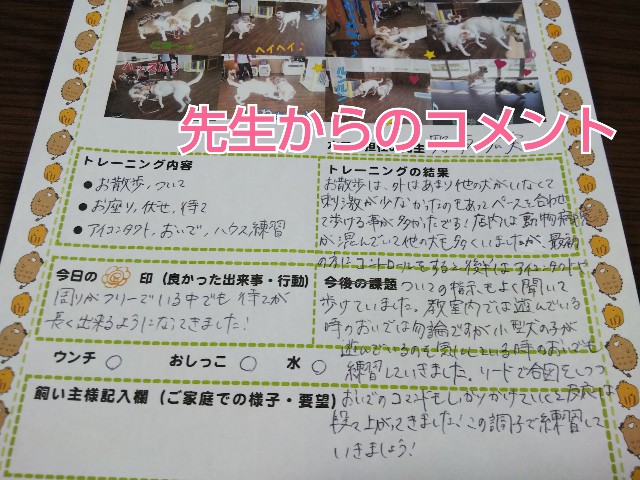 ヘイヘイ♪
先生からのコメント
トレーニング内容
●お散歩,ついて
●お座り,伏せ,待て
●アイコンタクト,おいで,ハウス練習
トレーニングの結果
お散歩は、外はあまり他の犬がいなくて
刺激が少なかったのもあってペースを合わせ
て歩ける事が多かったです!店内は動物病院
が混んでいて他の犬も多くいましたが、最初
の方にコントロールをすると後半はアイコンタクトや
今日の 印(良かった出来事・行動)
周りがフリーでいる中でも待てが
長く出来るようになってきました!
今後の課題
ついての指示もよく聞いて
歩けていました。教室内では遊んでいる
時のおいでは勿論ですが小型犬の子が
遊んでいるのを気にしている時のおいでも
練習していきました。リードで合図をしつつ
おいでのコマンドもしっかりかけていくと反応は
段々上がってきました!この調子で練習して
いきましょう!
ウンチ ○ おしっこ ○ 水 ○
飼い主様記入欄(ご家庭での様子・要望)